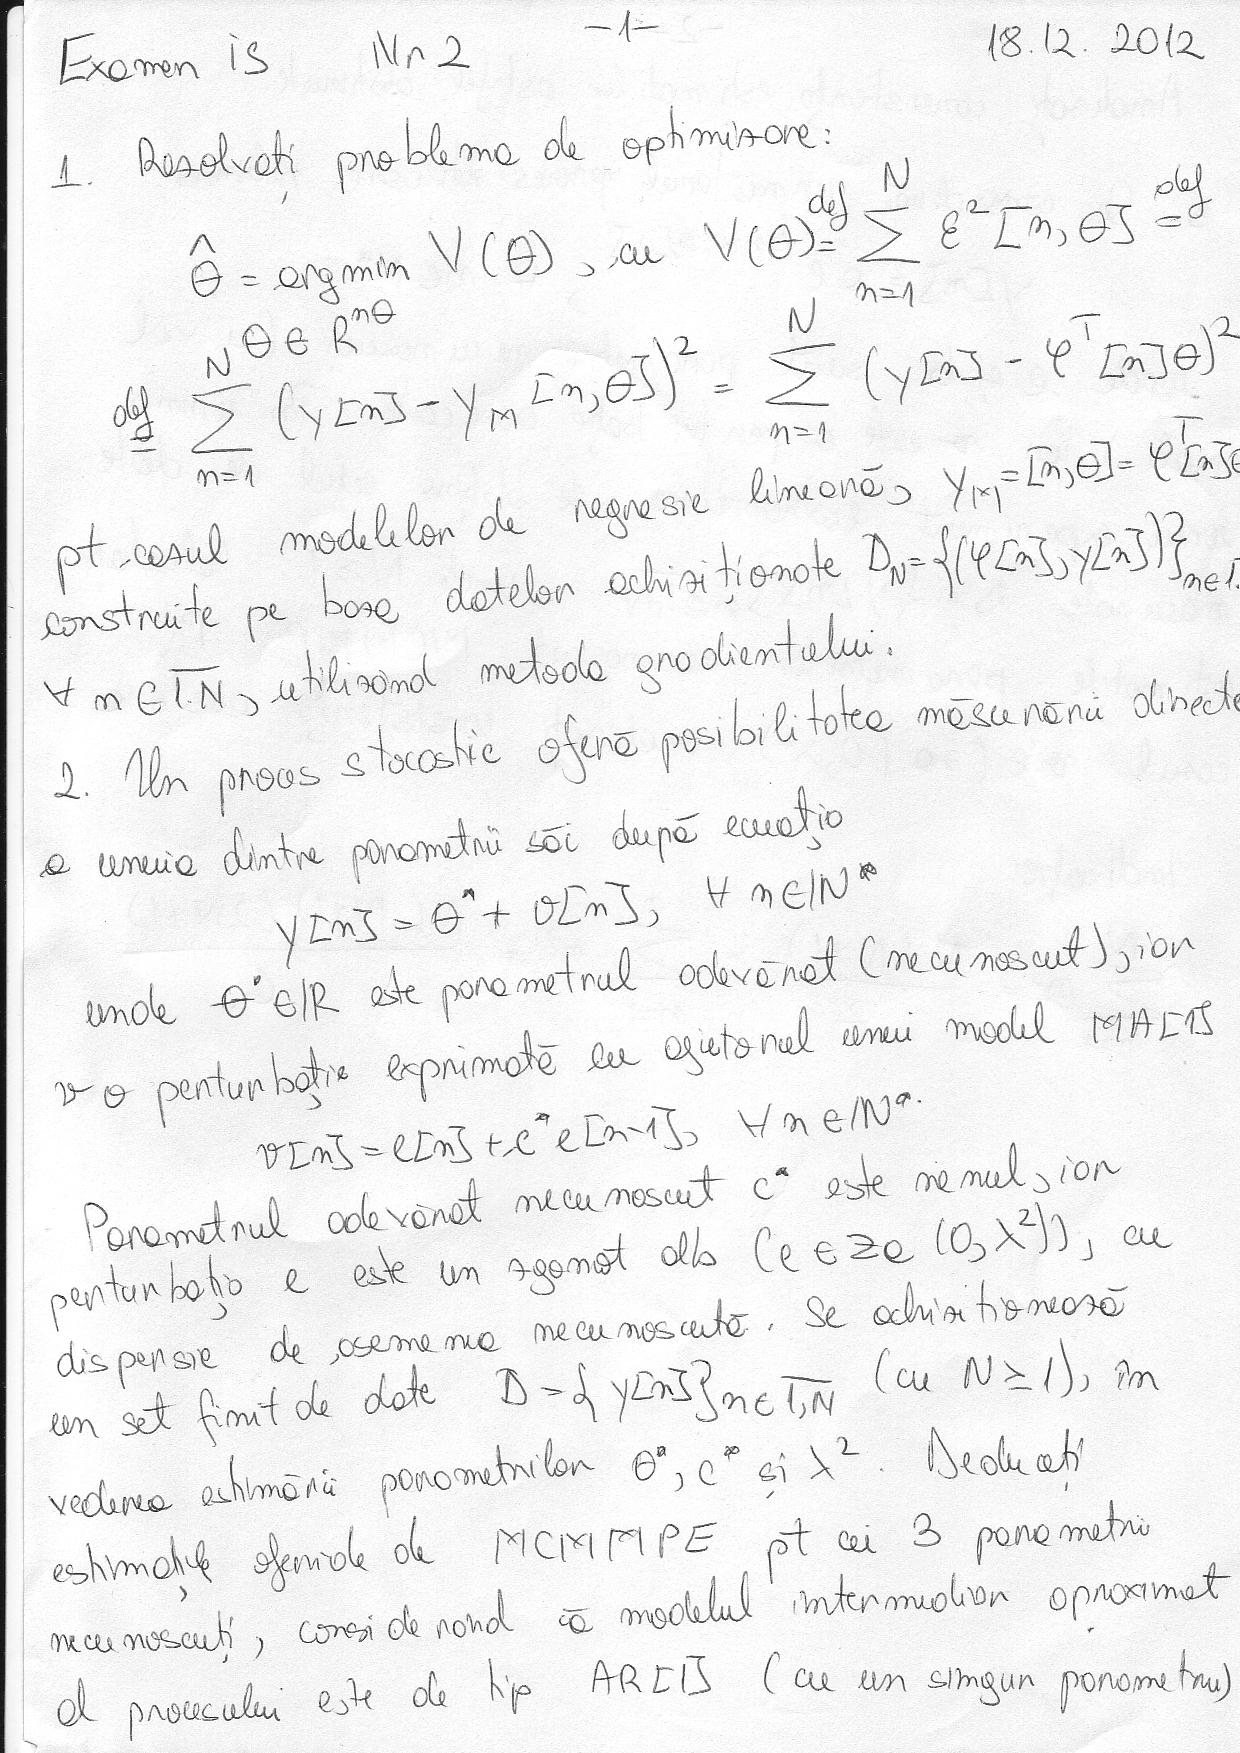 -1-
Examen IS Nr 2 18.12.2012
1. Rezolvați problema de optimizare:
θ̂ = argmin V(θ), cu V(θ) def= Σ_{n=1}^{N} ε²[n,θ] def=
θ∈R^{nθ}
def= Σ_{n=1}^{N} (y[n] - y_M[n,θ])² = Σ_{n=1}^{N} (y[n] - φᵀ[n]θ)²
pt cazul modelelor de regresie liniară, y_M=[n,θ]=φᵀ[n]θ
construite pe baza datelor achiziționate D_N={(φ[n],y[n])}_{n∈1.
∀ n∈1.N, utilizand metoda gradientului.
2. Un proces stocastic oferă posibilitatea măsurării directe
a unuia dintre parametrii săi după ecuația
y[n] = θ* + v[n], ∀ n∈N*
unde θ*∈R este parametrul adevărat (necunoscut), iar
v o perturbație exprimată cu ajutorul unui model MA[1]
v[n]=e[n]+c*e[n-1], ∀n∈N*.
Parametrul adevărat necunoscut c* este nenul, iar
perturbația e este un zgomot alb (e∈Ze(0,λ²)), cu
dispersie de asemenea necunoscută. Se achizitionează
un set finit de date D={y[n]}_{n∈1,N} (cu N≥1), în
vederea estimării parametrilor θ*, c* și λ². Deduceți
estimațiile oferide de MCMMPE pt cei 3 parametri
necunoscuți, considerand că modelul intermediar aproximat
al procesului este de tip AR[1] (cu un singur parametru)